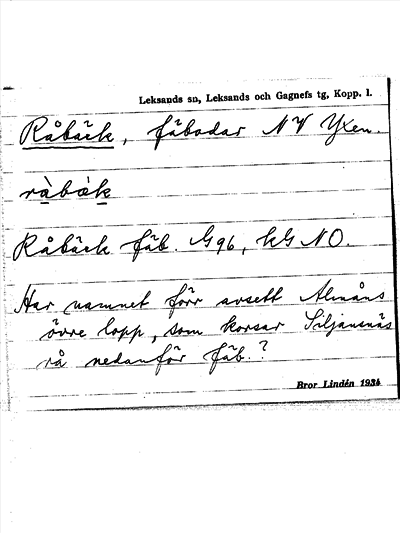 Leksands sn, Leksands och Gagnefs tg, Kopp. l.
Råbäck, fäbodar NV Yxen.
ràbäk
Råbäck fäb. G96, kG NO.
Har namnet förr avsett Almåns
övre lopp, som korsar Siljansnäs
rå nedanför fäb.?
Bror Lindén 1934